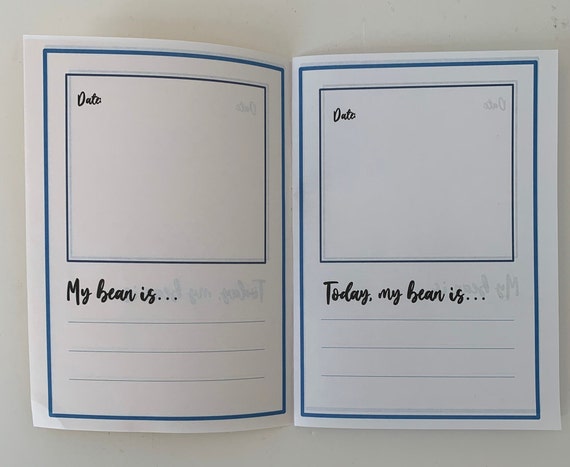 Date:
My bean is...
Date:
Today, my bean is...